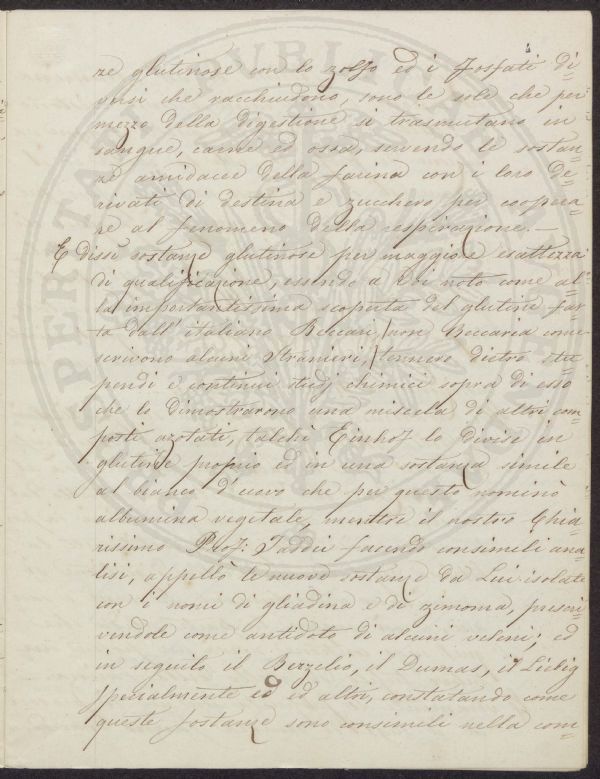 4
ze glutinose con lo zolfo ed i fosfati di=
versi che racchiudono, sono le sole che per
mezzo della digestione si trasmutano in
sangue, carne ed ossa, servendo le sostan=
ze amidacee della farina con i loro de=
rivati di destina e zucchero per coopera=
re al fenomeno della respirazione. —
E dissi sostanze glutinose per maggiore esattezza
di qualificazione, essendo a Voi noto come al=
la importantissima scoperta del glutine fat=
ta dall' italiano Beccari, /non Beccaria come
scrivono alcuni stranieri,/ tennero dietro stu=
pendi e continui studj chimici sopra di esso
che lo dimostrarono una miscela di altri com=
posti azotati, talchè Einhof lo divise in
glutine proprio ed in una sostanza simile
al bianco d'uovo che per questo nominò
albumina vegetale, mentre il nostro Chia=
rissimo Prof: Taddei facendo consimili ana=
lisi, appellò le nuove sostanze da Lui isolate
con i nomi di gliadina e di zimoma, prescri=
vendole come antidoto di alcuni veleni; ed
in seguito il Berzelio, il Dumas, il Liebig
specialmente ed ed altri, constatando come
queste sostanze sono consimili nella com=